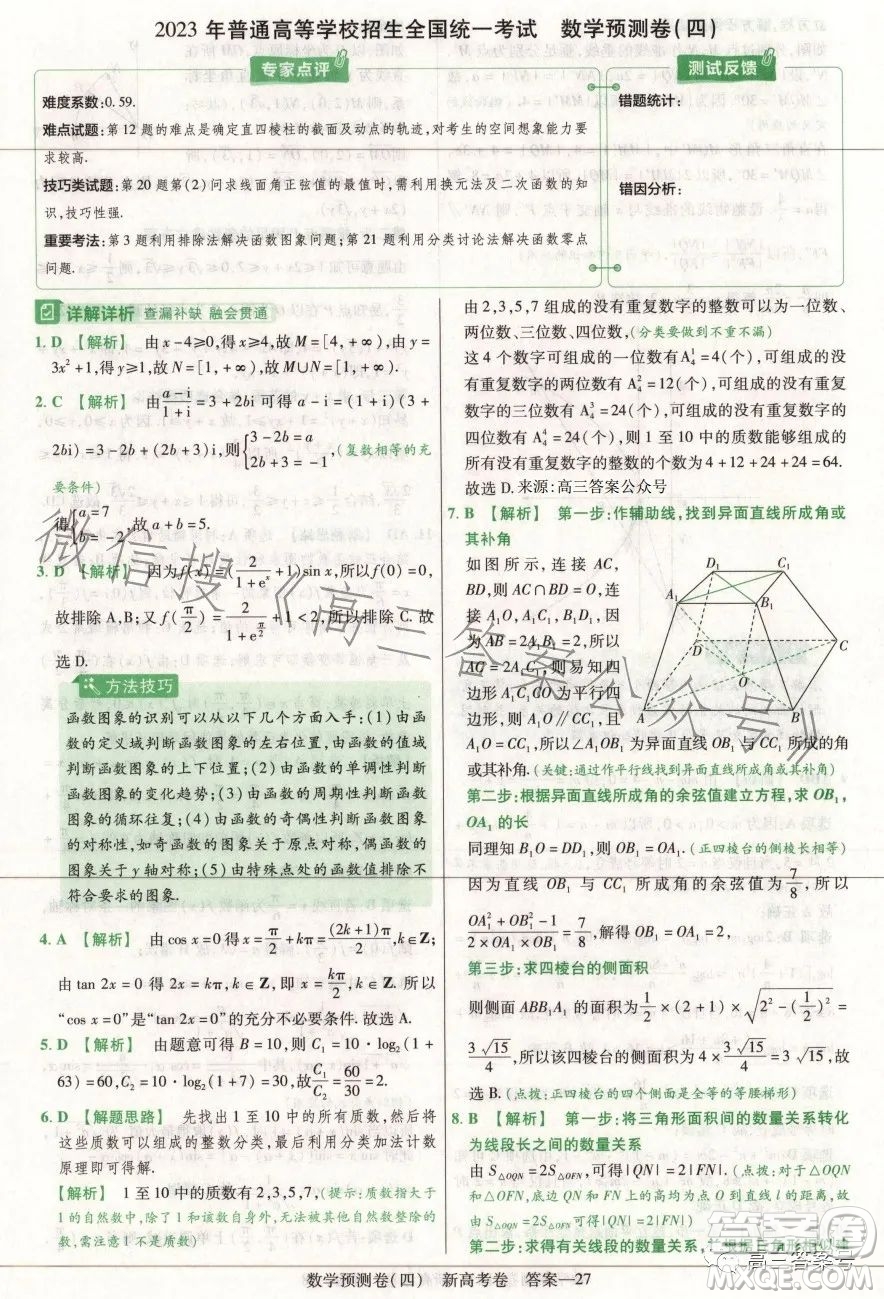 2023 年普通高等学校招生全国统一考试 数学预测卷(四)
专家点评
难度系数:0.59.
难点试题:第 12 题的难点是确定直四棱柱的截面及动点的轨迹,对考生的空间想象能力要
求较高.
技巧类试题:第 20 题第(2)问求线面角正弦值的最值时,需利用换元法及二次函数的知
识,技巧性强.
重要考法:第 3 题利用排除法解决函数图象问题;第 21 题利用分类讨论法解决函数零点
问题.
测试反馈
错题统计:
错因分析:
详解详析 查漏补缺 融会贯通
1. D 【解析】 由 x-4≥0,得 x≥4,故 M=[4,+∞),由 y=
3x²+1,得 N=[1,+∞),故 M∪N=[1,+∞).
2. C 【解析】 由(a-i)/(1+i)=3+2bi 可得 a-i=(1+i)(3+
2bi)=3-2b+(2b+3)i,则{3-2b=a, 2b+3=-1,(复数相等的充
要条件)
得{a=7, b=-2,故 a+b=5.
3. D 【解析】 因为f(x)=(2/(1+eˣ)-1)sin x,所以f(0)=0,
故排除 A,B;又 f(π/2)=2/(1+e^(π/2))-1<2,所以排除 C. 故
选 D.
方法技巧
函数图象的识别可以从以下几个方面入手:(1)由函
数的定义域判断函数图象的左右位置,由函数的值域
判断函数图象的上下位置;(2)由函数的单调性判断
函数图象的变化趋势;(3)由函数的周期性判断函数
图象的循环往复;(4)由函数的奇偶性判断函数图象
的对称性,如奇函数的图象关于原点对称,偶函数的图
象关于 y 轴对称;(5)由特殊点处的函数值排除不
符合要求的图象.
4. A 【解析】 由 cos x=0 得 x=π/2+kπ=(2k+1)π/2,k∈Z;
由 tan 2x=0 得 2x=kπ,k∈Z,即 x=kπ/2,k∈Z. 所以
“cos x=0”是“tan 2x=0”的充分不必要条件.故选 A.
5. D 【解析】 由题意可得 B=10,则 C₁=10·log₂(1+
63)=60,C₂=10·log₂(1+7)=30,故C₁/C₂=60/30=2.
6. D 【解题思路】 先找出 1 至 10 中的所有质数,然后将
这些质数可以组成的整数分类,最后利用分类加法计数
原理即可得解.
【解析】 1 至 10 中的质数有 2,3,5,7,(提示:质数指大于
1 的自然数中,除了 1 和该数自身外,无法被其他自然数整除的数,注
意 1 不是质数)
由 2,3,5,7 组成的没有重复数字的整数可以为一位数、
两位数、三位数、四位数,(分类要做到不重不漏)
这 4 个数字可组成的一位数有A₄¹=4(个),可组成没有
重复数字的两位数有 A₄²=12(个),可组成没有重复
数字的三位数有 A₄³=24(个),可组成没有重复数字的
四位数有 A₄⁴=24(个),则 1 至 10 中的质数能够组成的
所有没有重复数字的整数的个数为 4+12+24+24=64.
故选 D. 米源:高三答案公众号
7. B 【解析】 第一步:作辅助线,找到异面直线所成角或
其补角
如图所示,连接 AC,
BD,设 AC∩BD=O,连
接 A₁O,A₁C₁,B₁O,因
为 AB=2A₁B₁=2,所以
AC=2A₁C₁,则易知四
边形 A₁C₁CO为平行四
边形,所以A₁O∥CC₁,且
A₁O=CC₁,所以∠A₁OB₁为异面直线 OB₁ 与 CC₁ 所成的角或
其补角.(关键:通过作平行线找到异面直线所成角或其补角)
D₁
C₁
A₁
B₁
D
C
O
A
B
第二步:根据异面直线所成角的余弦值建立方程,求 OB₁,
OA₁ 的长
同理知 B₁O=DD₁,所以 OB₁=OA₁,(正四棱台的侧棱长相等)
因为直线 OB₁ 与 CC₁ 所成角的余弦值为7/8,所以
(OA₁²+OB₁²-1)/(2×OA₁×OB₁)=7/8,所以 OB₁=OA₁=2,
第三步:求四棱台的侧面积
则侧面 ABB₁A₁ 的面积为1/2×(2+1)×√(2²-(1/2)²)=
3√15/4,所以该四棱台的侧面积为 4×3√15/4=3√15,故
选 B.(点拨:正四棱台的四个侧面是全等的等腰梯形)
8. B 【解析】 第一步:将三角形面积间的数量关系转化
为线段长之间的数量关系
由 S△OQN=2S△OFN可得|QN|=2|FN|.(点拨:对于△OQN
和△OFN,底边 QN 和 FN 上的高均为点 O 到直线 l 的距离,故
由 S△OQN=2S△OFN可得|QN|=2|FN|)
第二步:求得有关线段的数量关系
数学预测卷(四) 新高考卷 答案—27
微信搜《高三答案公众号》
答案圈
高三答案号